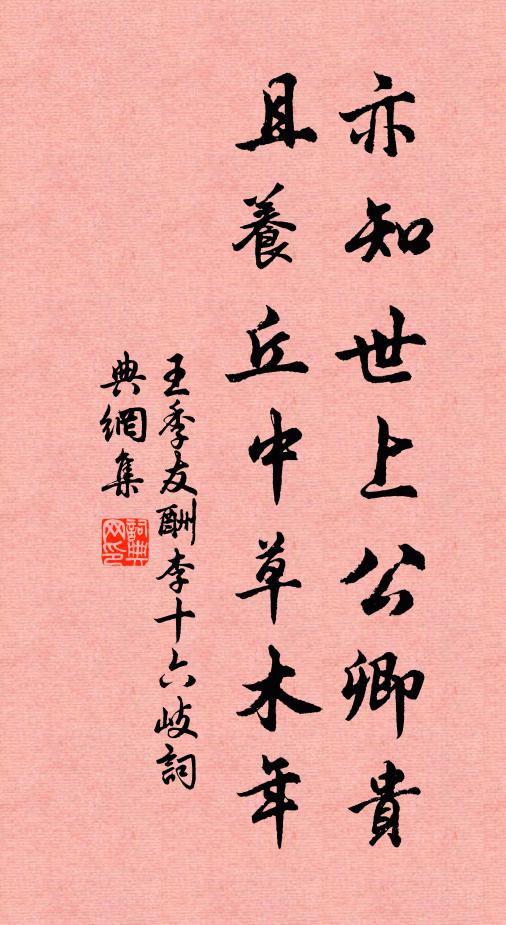 亦知世上公卿貴
且養丘中草木年
王季友酬李十六岐詞
典網集
詞典網印